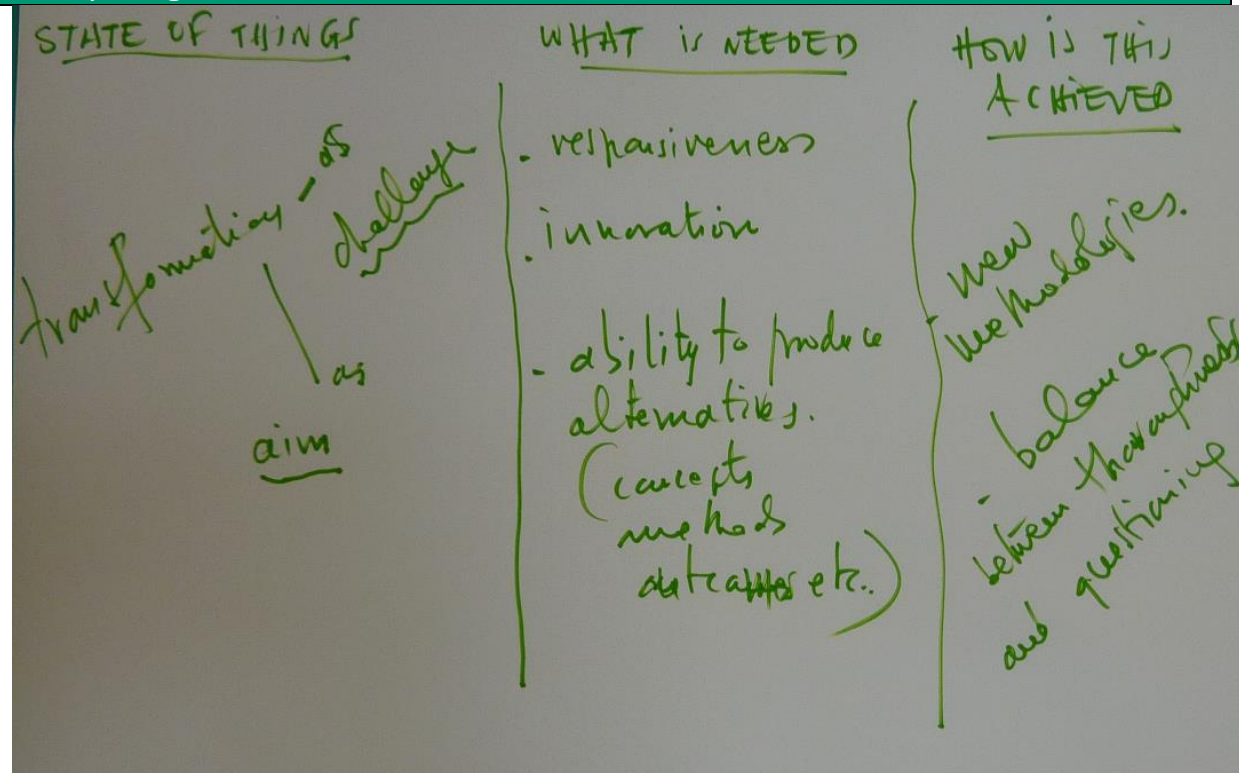 STATE OF THINGS
transformation - as
challenge
as
aim
WHAT is NEEDED
. responsiveness
. innovation
- ability to produce
alternatives.
(concepts
methods
outcomes etc..)
HOW iS THiS
ACHiEVED
- new
methodologies.
- balance
between thoroughness
and questioning